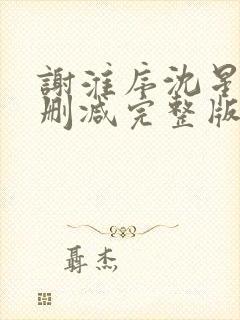 謝淮序沈星
刪减完整版
聶杰